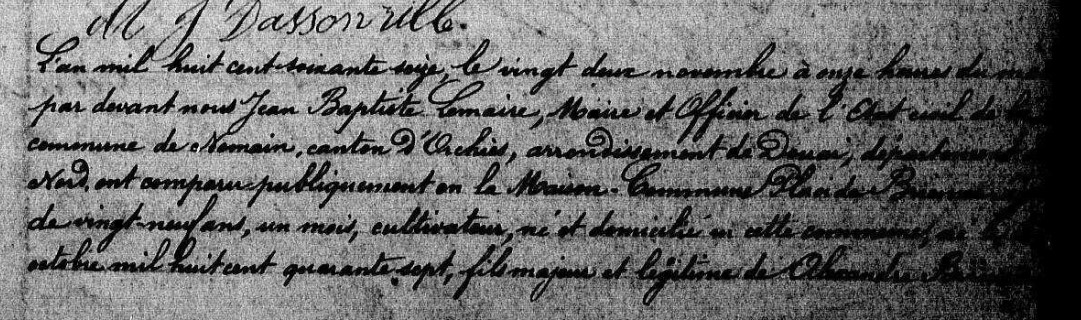 M J Dassonville.
L'an mil huit cent soixante seize, le vingt deux novembre à onze heures du
par devant nous Jean Baptiste Lemaire, Maire et Officier de l'Etat civil de la
commune de Nomain, canton d'Orchies, arrondissement de Douai, département
Nord, ont comparu publiquement en la Maison Commune
de vingt-neuf ans, un mois, cultivateur, né et domicilié en cette commune,
octobre mil huit cent quarante sept, fils majeur et légitime de Alexandre